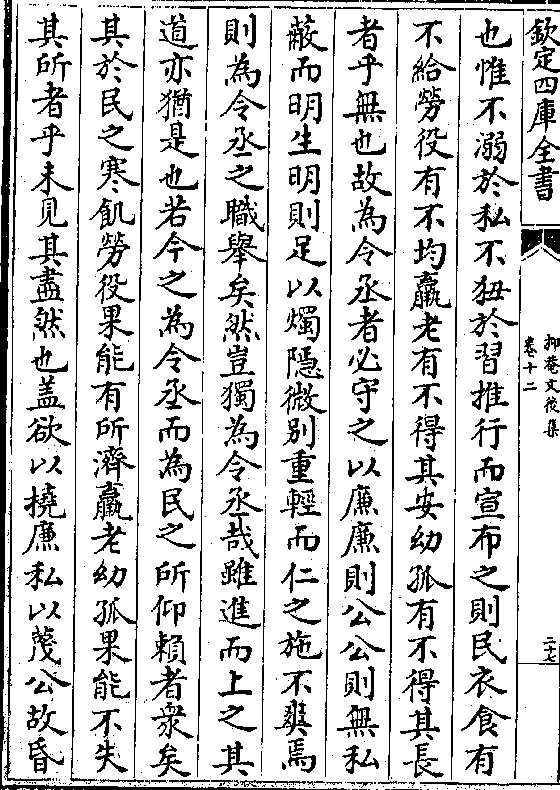 欽定四庫全書
抑菴文後集
卷十二
二十七
也惟不溺於私不狃於習推行而宣布之則民衣食有
不給勞役有不均羸老有不得其安幼孤有不得其長
者乎無也故為令丞者必守之以廉廉則公公則無私
蔽而明生明則足以燭隱微別重輕而仁之施不爽焉
則為令丞之職舉矣然豈獨為令丞哉雖進而上之其
道亦猶是也若今之為令丞而為民之所仰賴者衆矣
其於民之寒飢勞役果能有所濟羸老幼孤果能不失
其所者乎未見其盡然也盖欲以撓廉私以蔑公故昏